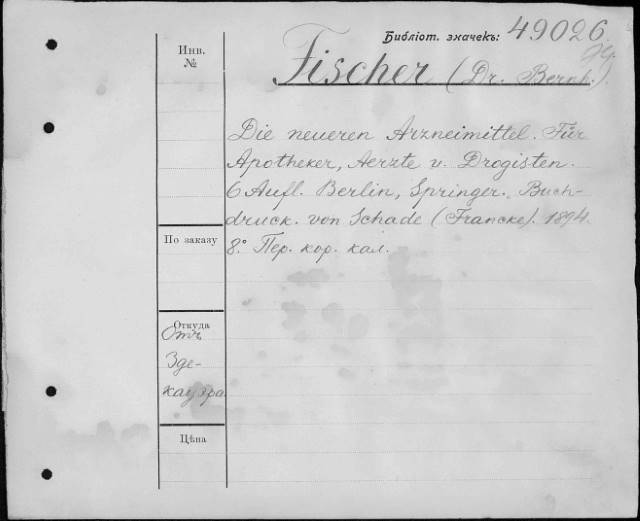 Библіот. значекъ: 49026.
Инв.
№
Fischer (Dr. Bernh.).
Die neueren Arzneimittel. Für
Apotheker, Aerzte u. Drogisten.
6 Aufl. Berlin, Springer. Buch-
druck. von Schade (Francke). 1894.
По заказу
8.° Пер. кор. кал.
Откуда
Отъ
Зде-
кауэра
Цѣна